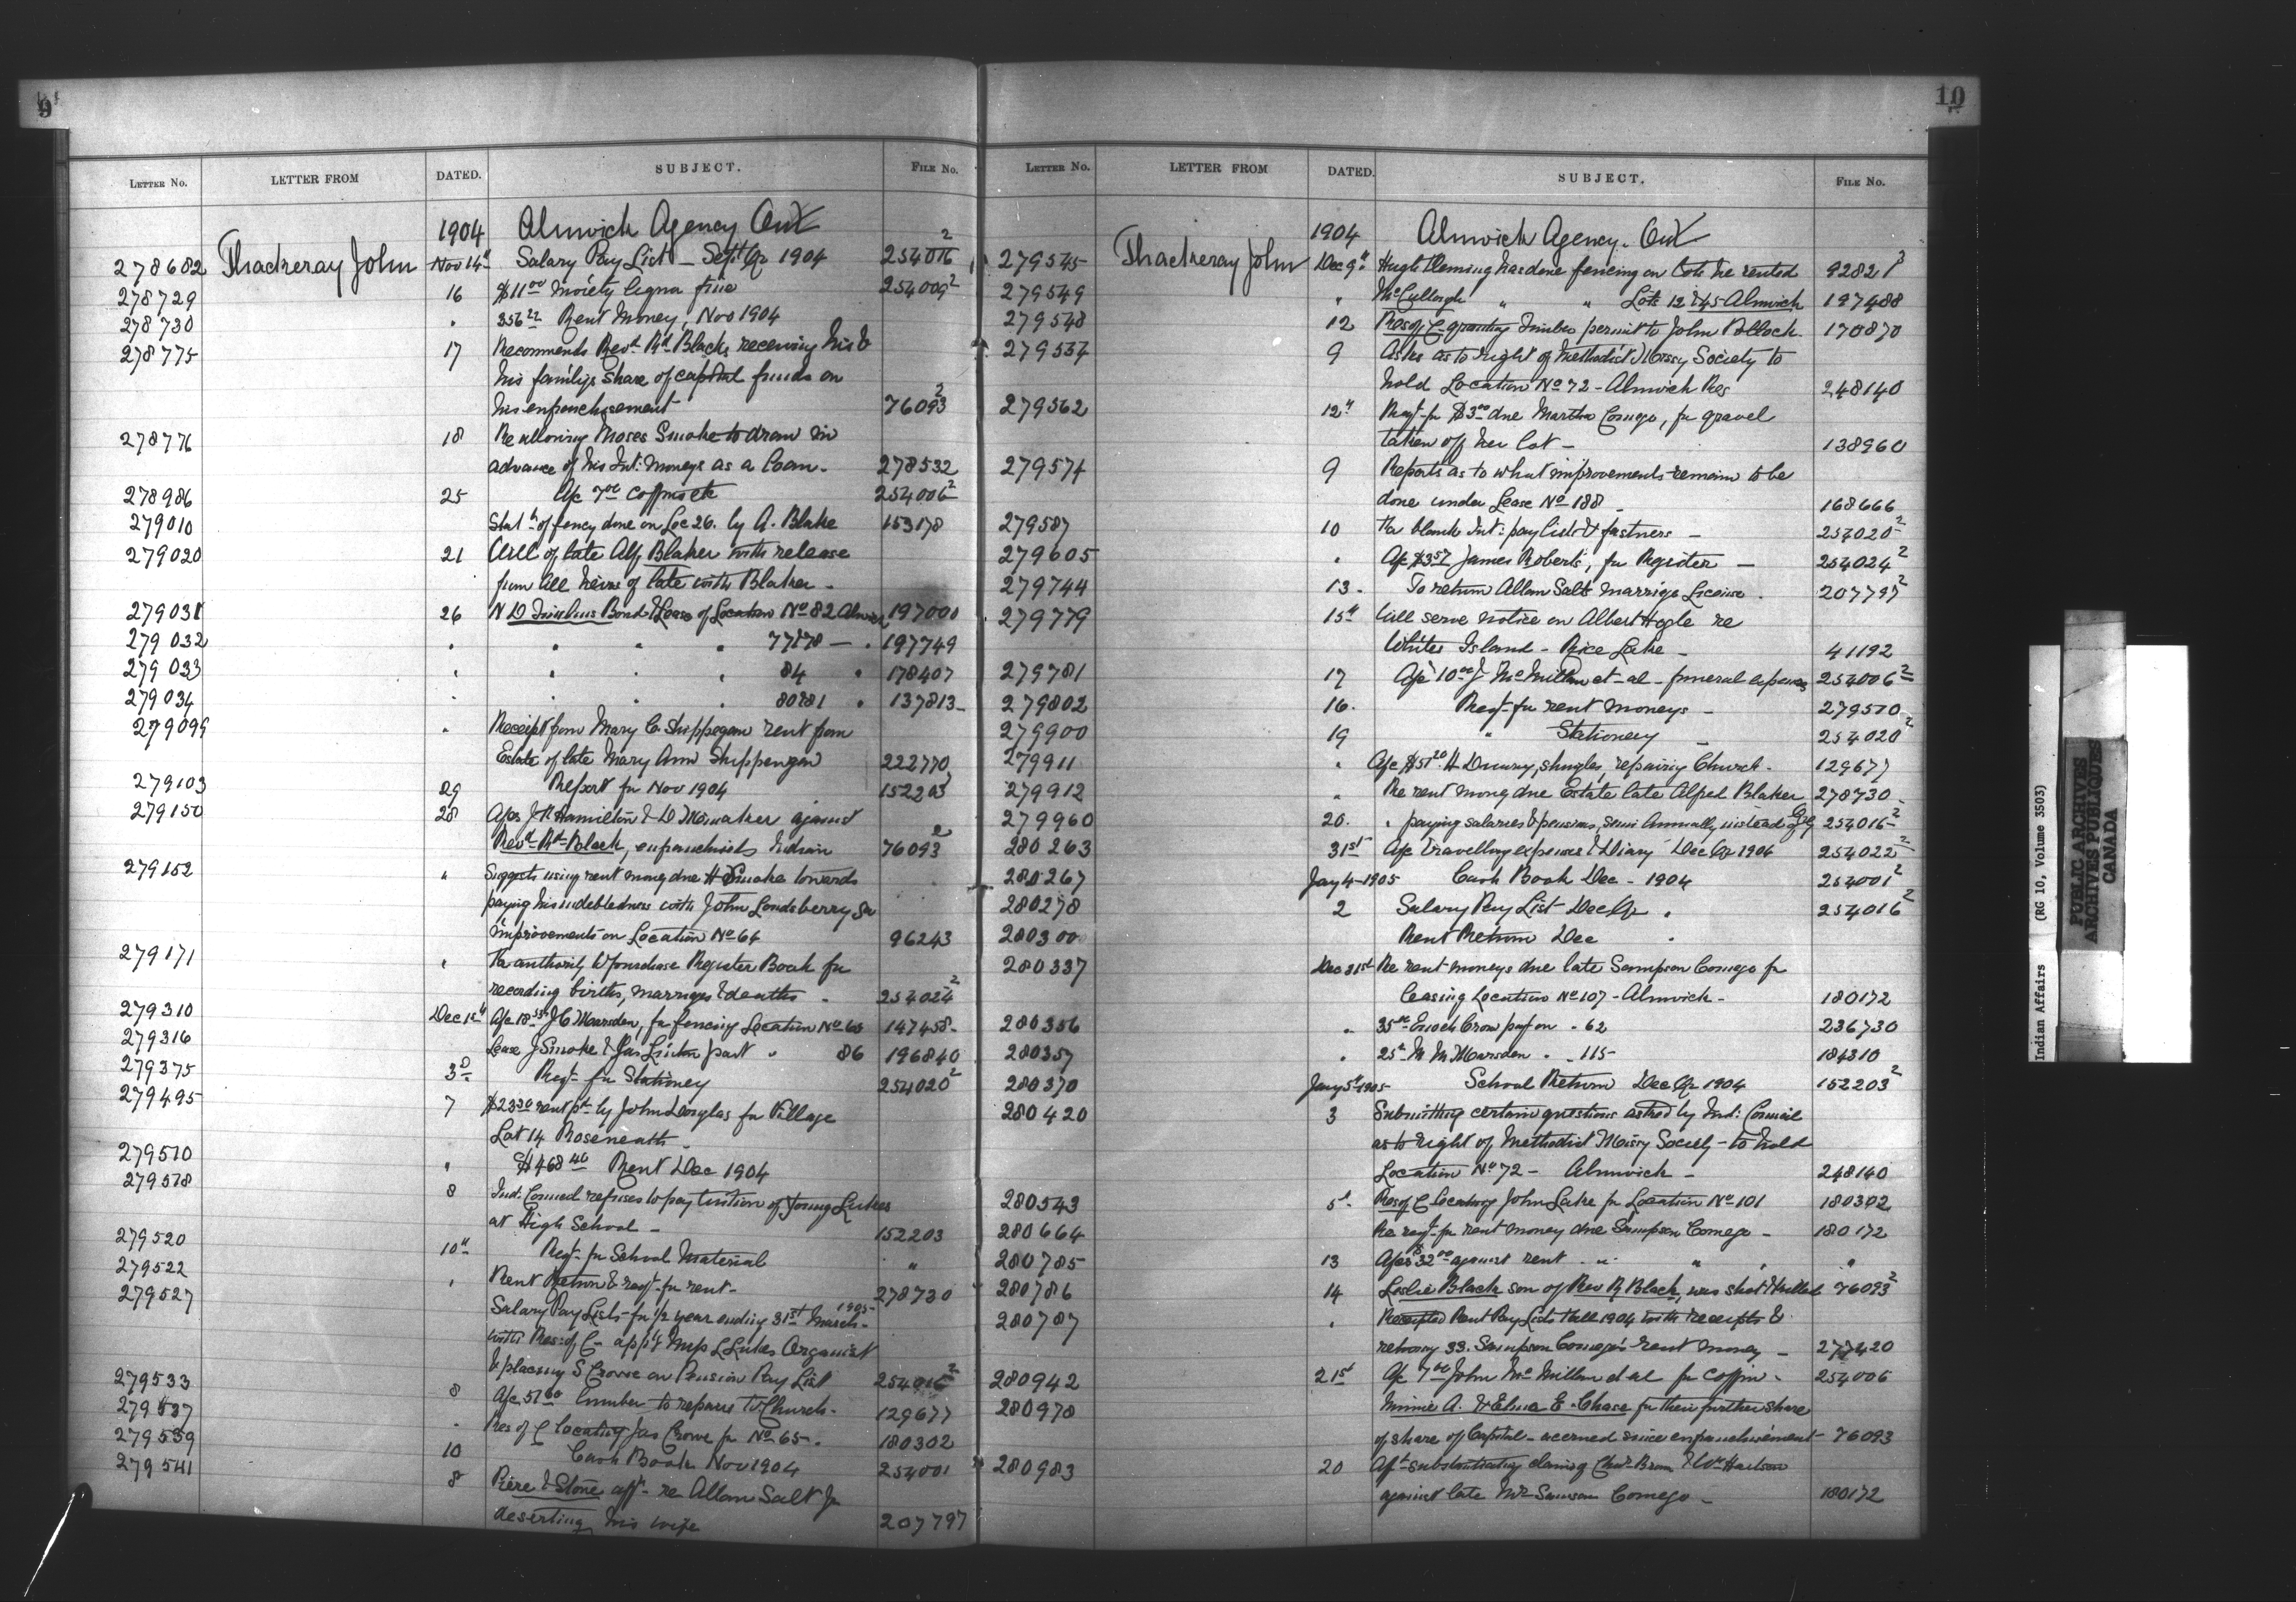 9
LETTER NO. LETTER FROM DATED. SUBJECT. FILE NO.
1904 Alnwich Agency Ont
278682 Thackeray John Nov 14th Salary Pay List - Sept Qr 1904 254016 2
278729 16 $11 00 moiety fine 254009 2
278730 " 356 22 Rent Money, Nov 1904
278775 17 Recommends Revd Rt Blacks receiving his &
his familys share of capital funds on
his enfranchisement 76093 2
278776 18 Re allowing Moses Smoke to draw in
advance of his Int: moneys as a loan - 278532
278986 25 a/c 7 00 coffins etc 254006 2
279010 of done on Loc 26. by A. Blake 153178
279020 21 Will of late Alf Blaker with release
from all heirs of late Blaker -
279031 26 N D Bond & Lease of Location No 82 Alnwick 197000
279032 " " " " 77&78 - " 197749
279033 " " " " 84 " 178407
279034 " " " " 80&81 " 137813 -
279099 " Receipt from Mary C. Shippegaw rent from
Estate of late Mary Ann Shippengaw 222770
279103 29 Report for Nov 1904 152203 2
279150 28 a/cs J R Hamilton & D against
Revd Rt Black, enfranchised Indian 76093 2
279152 " Suggests using rent money due H Smoke towards
paying his indebtedness with John Londsberry for
improvements on Location No 64 96243
279171 " For authority to purchase Register Book for
recording births, marriages & deaths - 254024 2
279310 Dec 1st a/c 18 J C Marsden, for fencing Location No 65 147458 -
279316 Lease J Smoke & Jas Linton part " 86 196840
279375 3d Reqt for Stationey 254020 2
279495 7 $23 rent pd by John Douglas for Village
Lot 14 Roseneath -
279510 " $468 46 Rent Dec 1904
279518 8 Ind: Council refuses to pay tuition of young Lukes
at High School - 152203
279520 10th Reqt for School Material "
279522 " Rent Return & reqt for rent - 278730
279527 Salary Pay Lists for 1/2 year ending 31st March 1905 -
with Res: of C - L Lukes Organist
& placing S Crowe on Pension Pay List 254016 2
279533 8 a/c 51 60 lumber to repairs to Church - 129677
279537 " Res of C locating Jas Crowe for No 65 - 180302
279539 10 Cash Book Nov 1904 254001
279541 8 & Stone aff - re Allan Salt Jr
deserting his wife 207797
10
LETTER NO. LETTER FROM DATED. SUBJECT. FILE NO.
1904 Alnwick Agency. Ont
279545 Thackeray John Dec 9th Hugh Fleming has done fencing on lots he rented 92821 3
279549 " McCullogh " " Lots 12 & 45 Alnwick 197488
279548 12 Res of C granting Timber permit to John Pollock. 170870
279554 9 Asks as to right of Methodist Missry Society to
hold Location No 72 - Alnwick Res 248140
279562 12th Reqt for $3 00 due Martha Comego, for gravel
taken off her lot - 138960
279574 9 Reports as to what improvements remain to be
done under Lease No 188 - 168666
279587 10 For blank Int: pay lists & fastners - 254020 2
279605 " a/c $3 57 James Roberts, for Register - 254024 2
279744 13. To return Allan Salt marriage License. 207797 2
279779 15th Will serve notice on Albert Hogle re
White's Island - Rice Lake - 41192
279781 17 a/c 10 00 J McMillan et-al - funeral expenses 254006 2
279802 16. Reqt for rent moneys - 279510
279900 19 " Stationery - 254020 2
279911 " a/c $51 20 H shingles, repairing Church - 129677
279912 " Re rent money due Estate late Alfred Blaker 278730 -
279960 20. " paying salaries & pensions, semi annually instead of Qrly 254016 2
280263 31st a/c travelling expenses & Diary Dec Qr 1904 254022 2
280267 Jany 4-1905 Cash Book Dec - 1904 254001 2
280278 2 Salary Pay List Dec Qr " 254016 2
280300 Rent Return Dec "
280337 Dec 31st Re rent moneys due late Sampson Comego for
leasing Location No 107 - Alnwick - 180172
280356 " 35 00 Enoch Crow on - 62 236730
280357 " 25 M Marsden " - 115 - 184310
280370 Jany 5th 1905 School Return Dec Qr 1904 152203 2
280420 3 Submitting certain questions asked by Ind: Council
as to right of Methodist Missry Society - to hold
Location No 72 - Alnwick - 248140
280543 5th Res of C locating John Lake for Location No 101 180302
280664 Re reqt for rent money due Sampson Comego - 180172
280785 13 a/cs $32 00 against rent " " " "
280786 14 Leslie Black son of Rev R Black, was shot & killed 76093 2
280787 " Receipted Rent Pay Lists Fall 1904 with receipts &
33. Sampson Comego's rent money - 277420
280942 21st a/c 7 00 John McMillan et al for coffin - 254006
280978 Minnie A. & Elma E. Chase for their further share
of share of Capital - accrued since enfranchisement - 76093
280983 20 Afft substantiating claim of Chas Brown & Wm
against late Mr Samson Comego - 180172
Indian Affairs (RG 10, Volume 3503)
PUBLIC ARCHIVES
ARCHIVES PUBLIQUES
CANADA